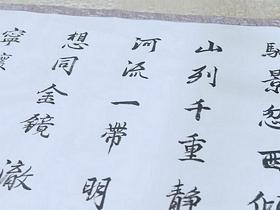 景忽西
山列千重靜
河流一帶明
想同金鏡澈
寧